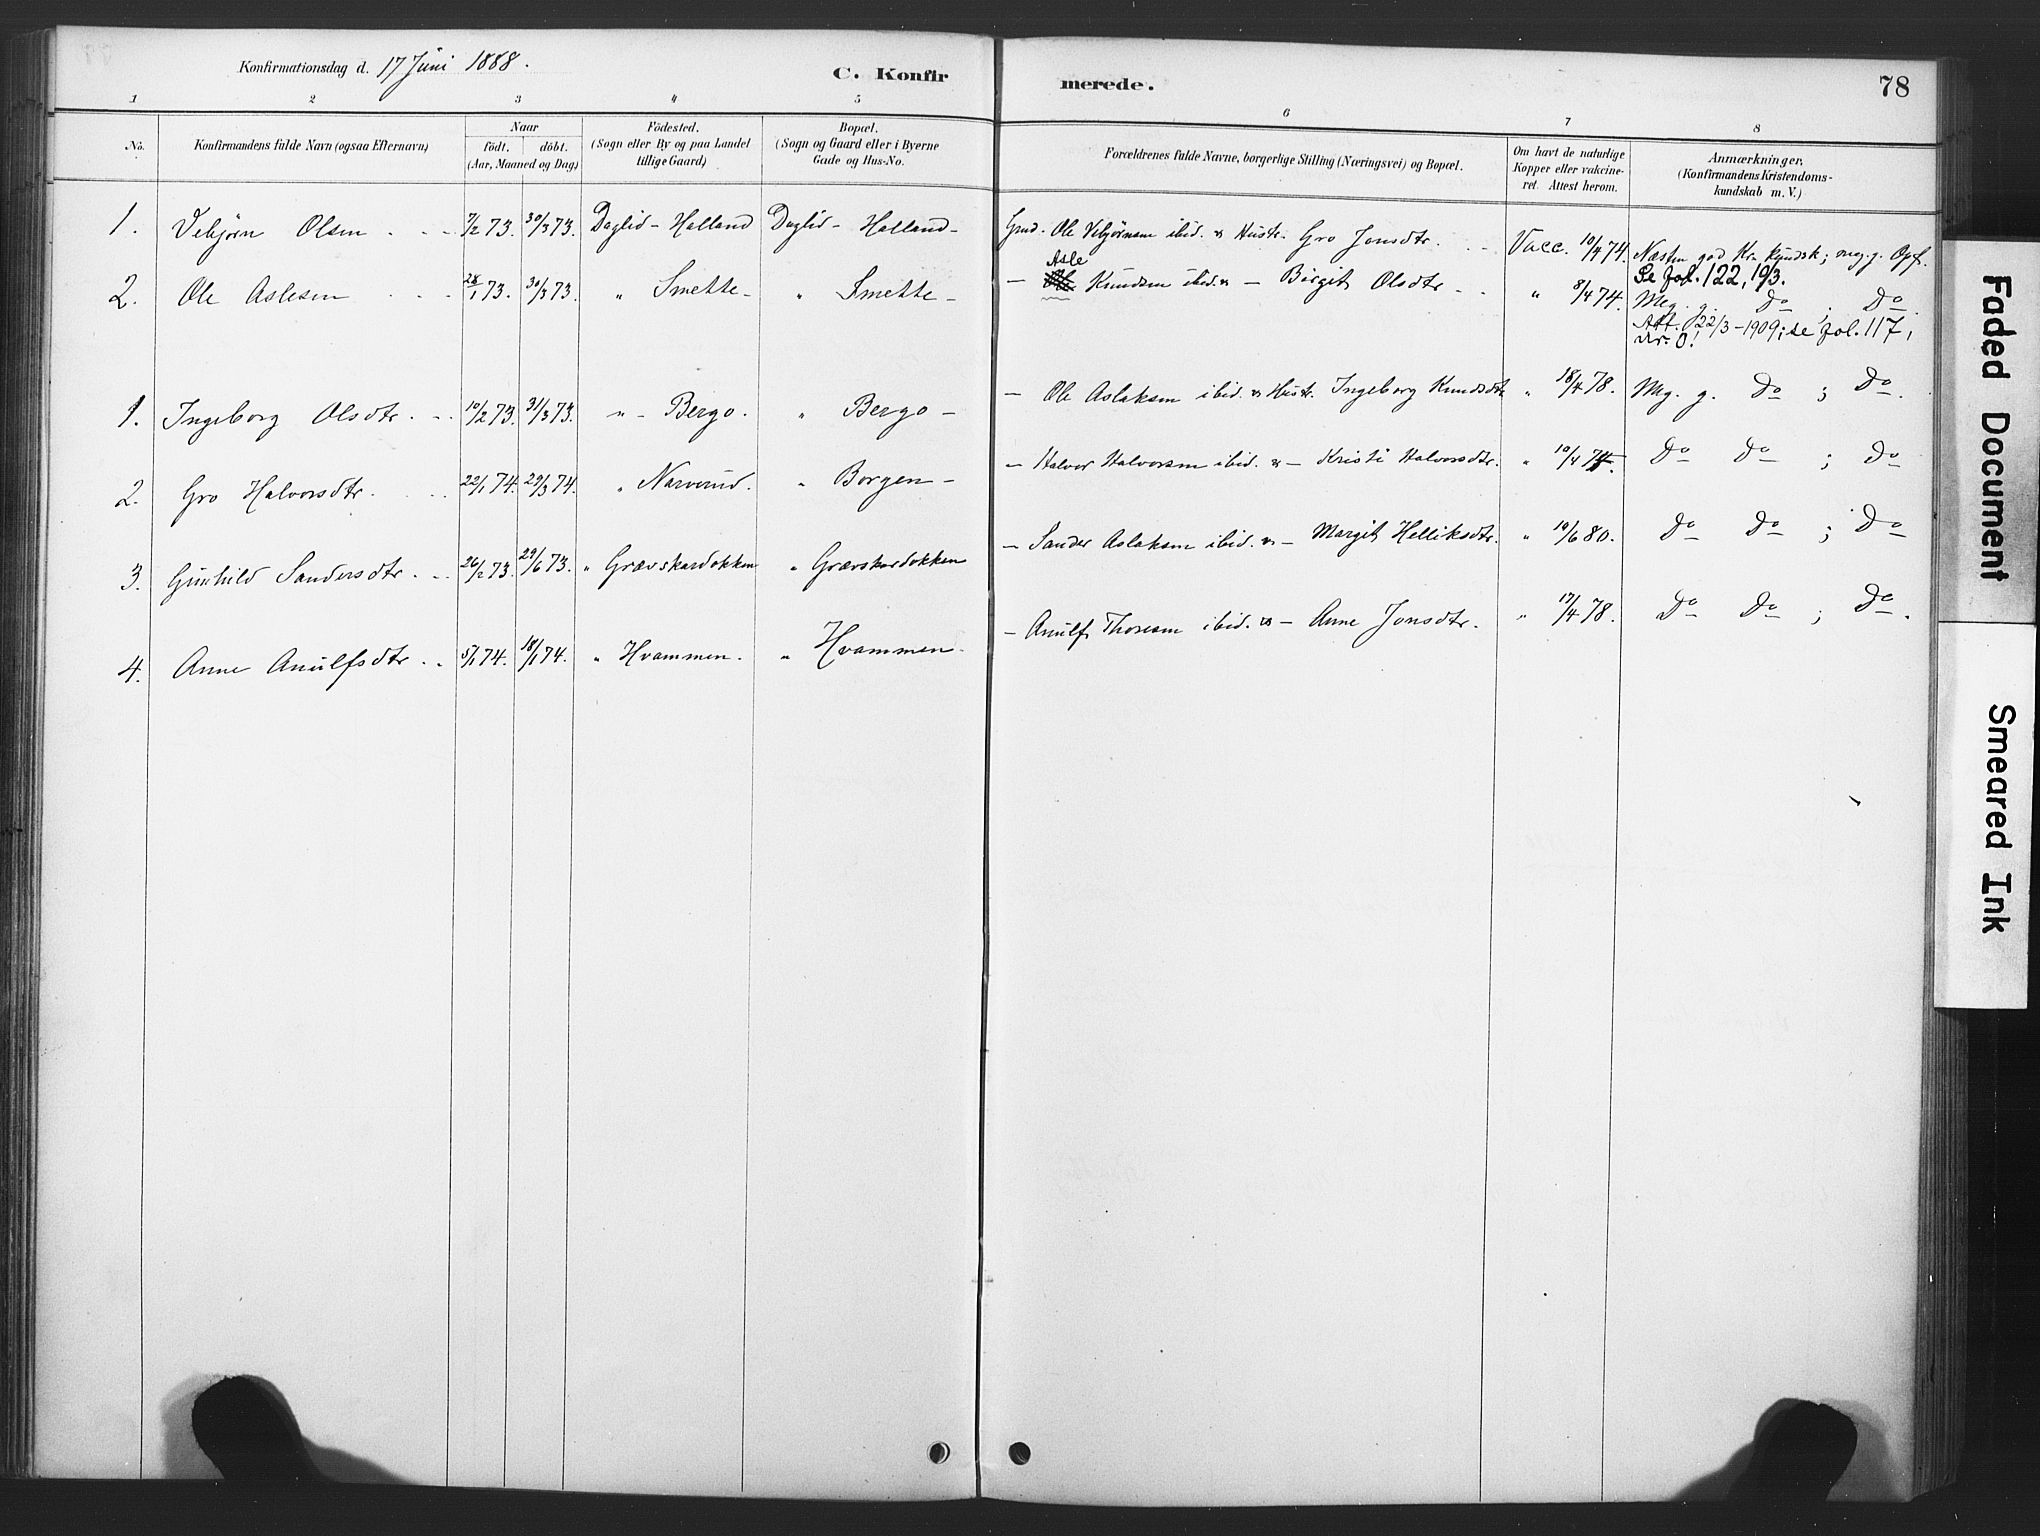 Konfirmationsdag d. 17 Juni 1888.
C. Konfir
merede.
78
1 2 3 4 5 6 7 8
No.
Konfirmandens fulde Navn (ogsaa Efternavn)
Naar
födt. döbt.
(Aar, Maaned og Dag)
Födested.
(Sogn eller By og paa Landet
tillige Gaard)
Bopæl.
(Sogn og Gaard eller i Byerne
Gade og Hus-No.
Forældrenes fulde Navne, borgerlige Stilling (Næringsvei) og Bopæl.
Om havt de naturlige
Kopper eller vakcine-
ret. Attest herom.
Anmærkninger.
(Konfirmandens Kristendoms-
kundskab m. V.)
1. Vebjörn Olsen . . - 7/2 73. 30/3 73. Daglid - Halland Daglid - Halland - Grmd. Ole Vebjörnsen ibid. & Hustr. Gro Jonsdtr. . - Vacc. 10/4 74. Næsten god Kr. kundsk; meg. g. Opf.
Se fol. 122, 19/3.
2. Ole Aslesen . . . - 28/1 73. 30/3 73. " Smette - " Smette - - Asle Knudsen ibid. & - Birgit Olsdtr - . " 8/4 74. Meg. g. Do ; Do.
Att. 22/3-1909; se fol. 117,
nr. 0!
1. Ingeborg Olsdtr. . - 10/2 73. 31/3 73. " - Bergo. " Bergo - - Ole Aslaksen ibid. & Hustr. Ingeborg Knudsdtr. " 18/4 78. Mg. g. Do ; Do.
2. Gro Halvorsdtr. . . 22/1 74. 29/3 74. " Narverud. " Borgen - - Halvor Halvorsen ibid. & - Kristi Halvorsdtr. " 10/4 75. Do Do ; Do
3. Gunhild Sandersdtr. . - 26/2 73. 29/6 73. " Grævskardokken " Grævskardokken - Sander Aslaksen ibid. & - Margit Helliksdtr. " 19/6 80. Do Do ; Do
4. Anne Anulfsdtr . . 5/1 74. 18/1 74. " Hvammen. " Hvammen. - Anulf Thoresen ibid. & - Anne Jonsdtr. " 17/4 78. Do Do ; Do.
Faded Document
Smeared Ink